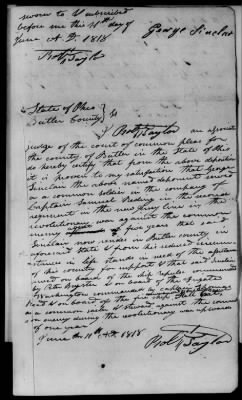 sworn to & subscribed
before me this 11th day of
June A.D. 1818
George Sinclair
Robt Taylor
State of Ohio
Butler County
I Robt Taylor an associate
judge of the court of common pleas for
the county of Butler in the State of Ohio
do hereby certify that from the above deposition
it is proved to my satisfaction that George
Sinclair the above named deponent served
as a common soldier in the company of
Captain Samuel in the second
regiment in the new Jersey line in the
revolutionary war against the common
enemy five years that said
Sinclair now resides in Butler county in
aforesaid State & from his reduced circum
stances in life stands in need of the assistance
of his country for support & that said Sinclair
served on board of the ship
by & on board of the Frigate
Washington commanded by
Read & on board of the fire ship
as a common against the common
enemy during the revolutionary war upwards
of one year
June 11th A.D. 1818
Robt Taylor